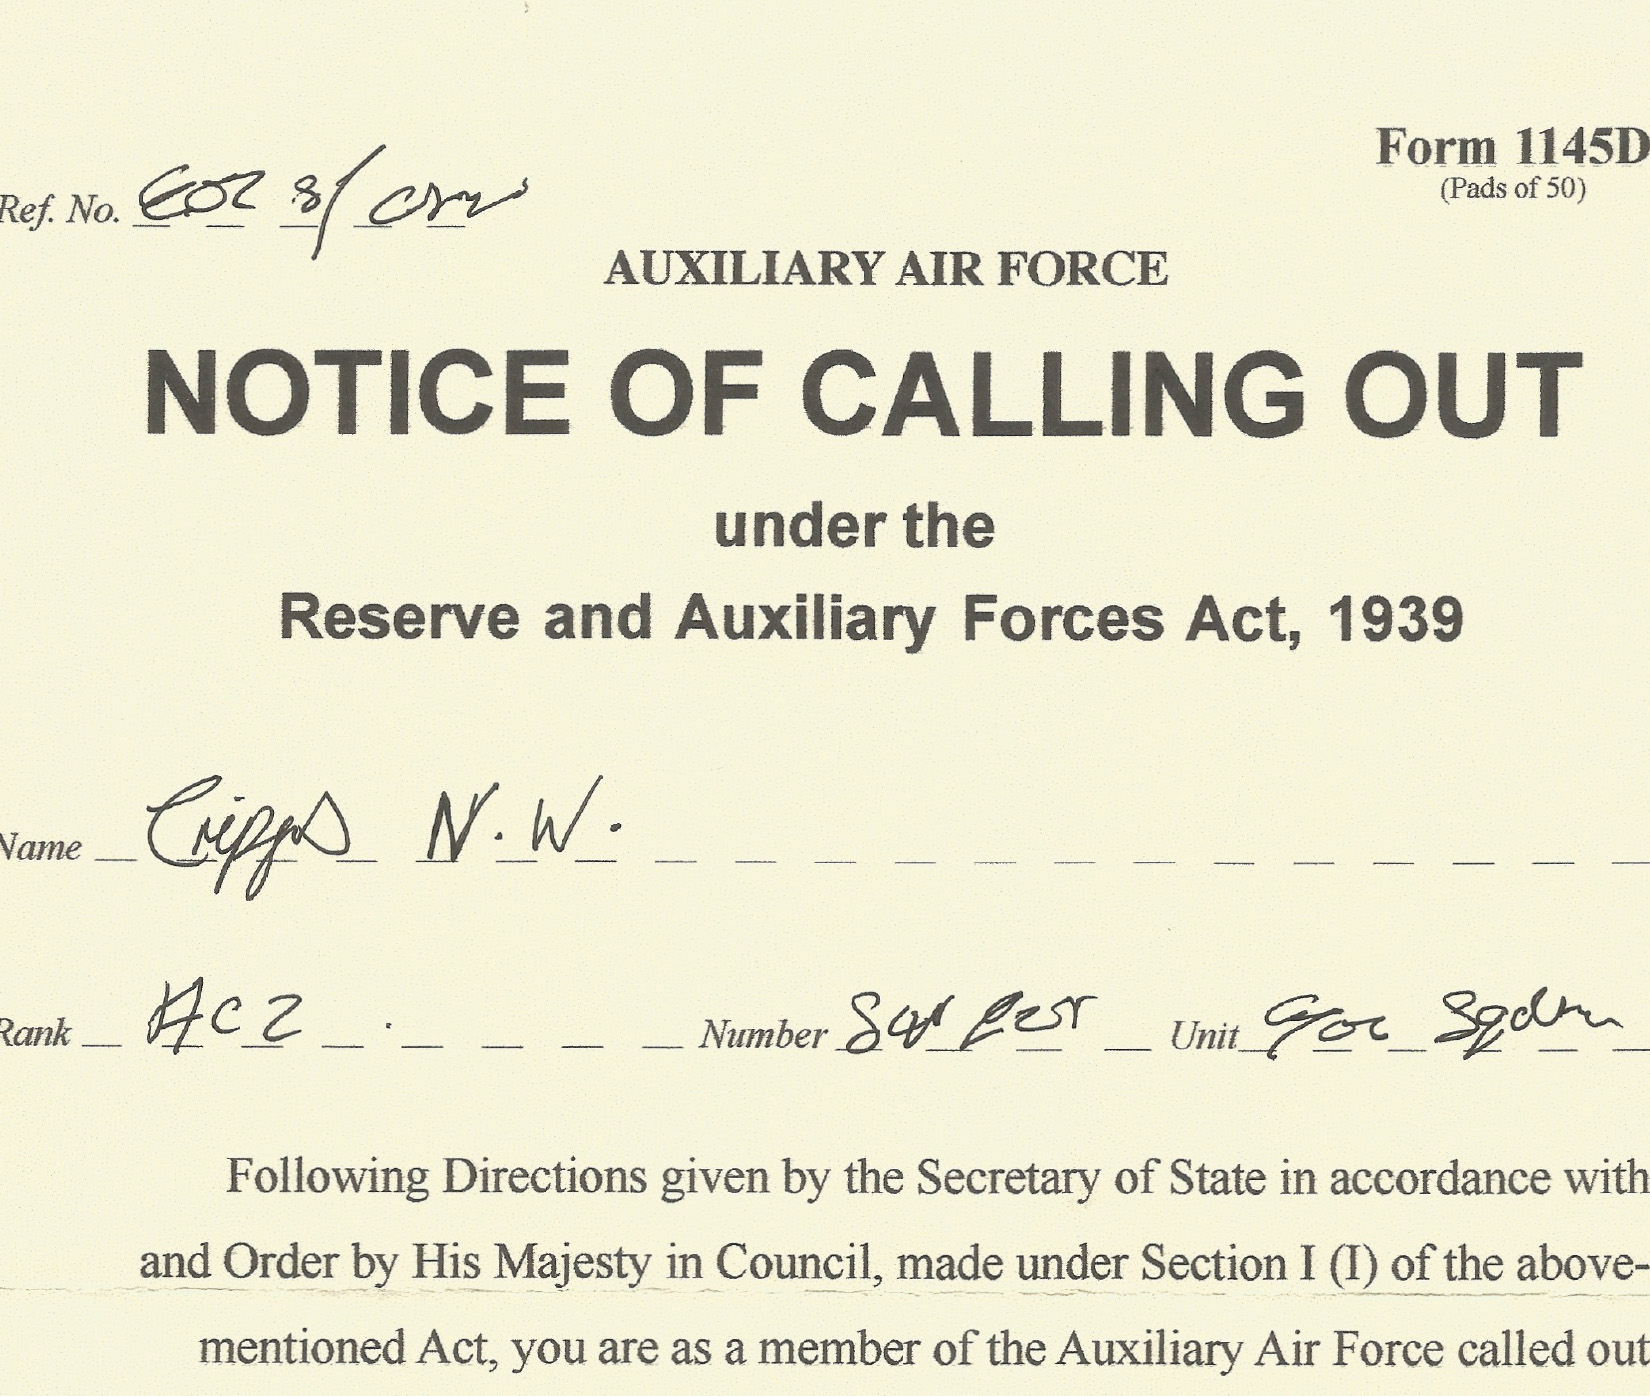 Form 1145D
(Pads of 50)
Ref. No.
AUXILIARY AIR FORCE
NOTICE OF CALLING OUT
under the
Reserve and Auxiliary Forces Act, 1939
Name Cripps N. W.
Rank AC2 Number Unit Sqdrn
Following Directions given by the Secretary of State in accordance with
and Order by His Majesty in Council, made under Section I (I) of the above-
mentioned Act, you are as a member of the Auxiliary Air Force called out